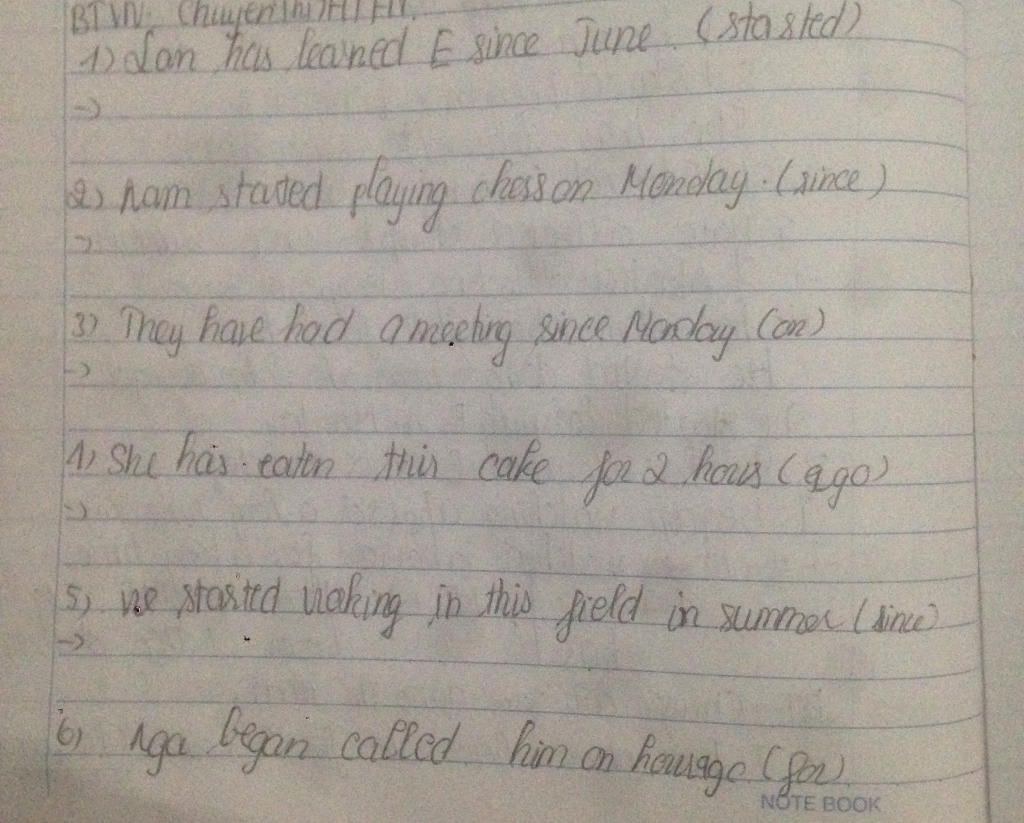 BTVN:
1) Lan has learned E since June. (started)
->
2) Nam started playing chess on Monday. (since)
->
3) They have had a meeting since Monday (on)
->
1) She has eaten this cake for 2 hours (ago)
->
5) We started woking in this field in summer (since)
->
6) Nga began called him an hour ago (for)
NOTE BOOK